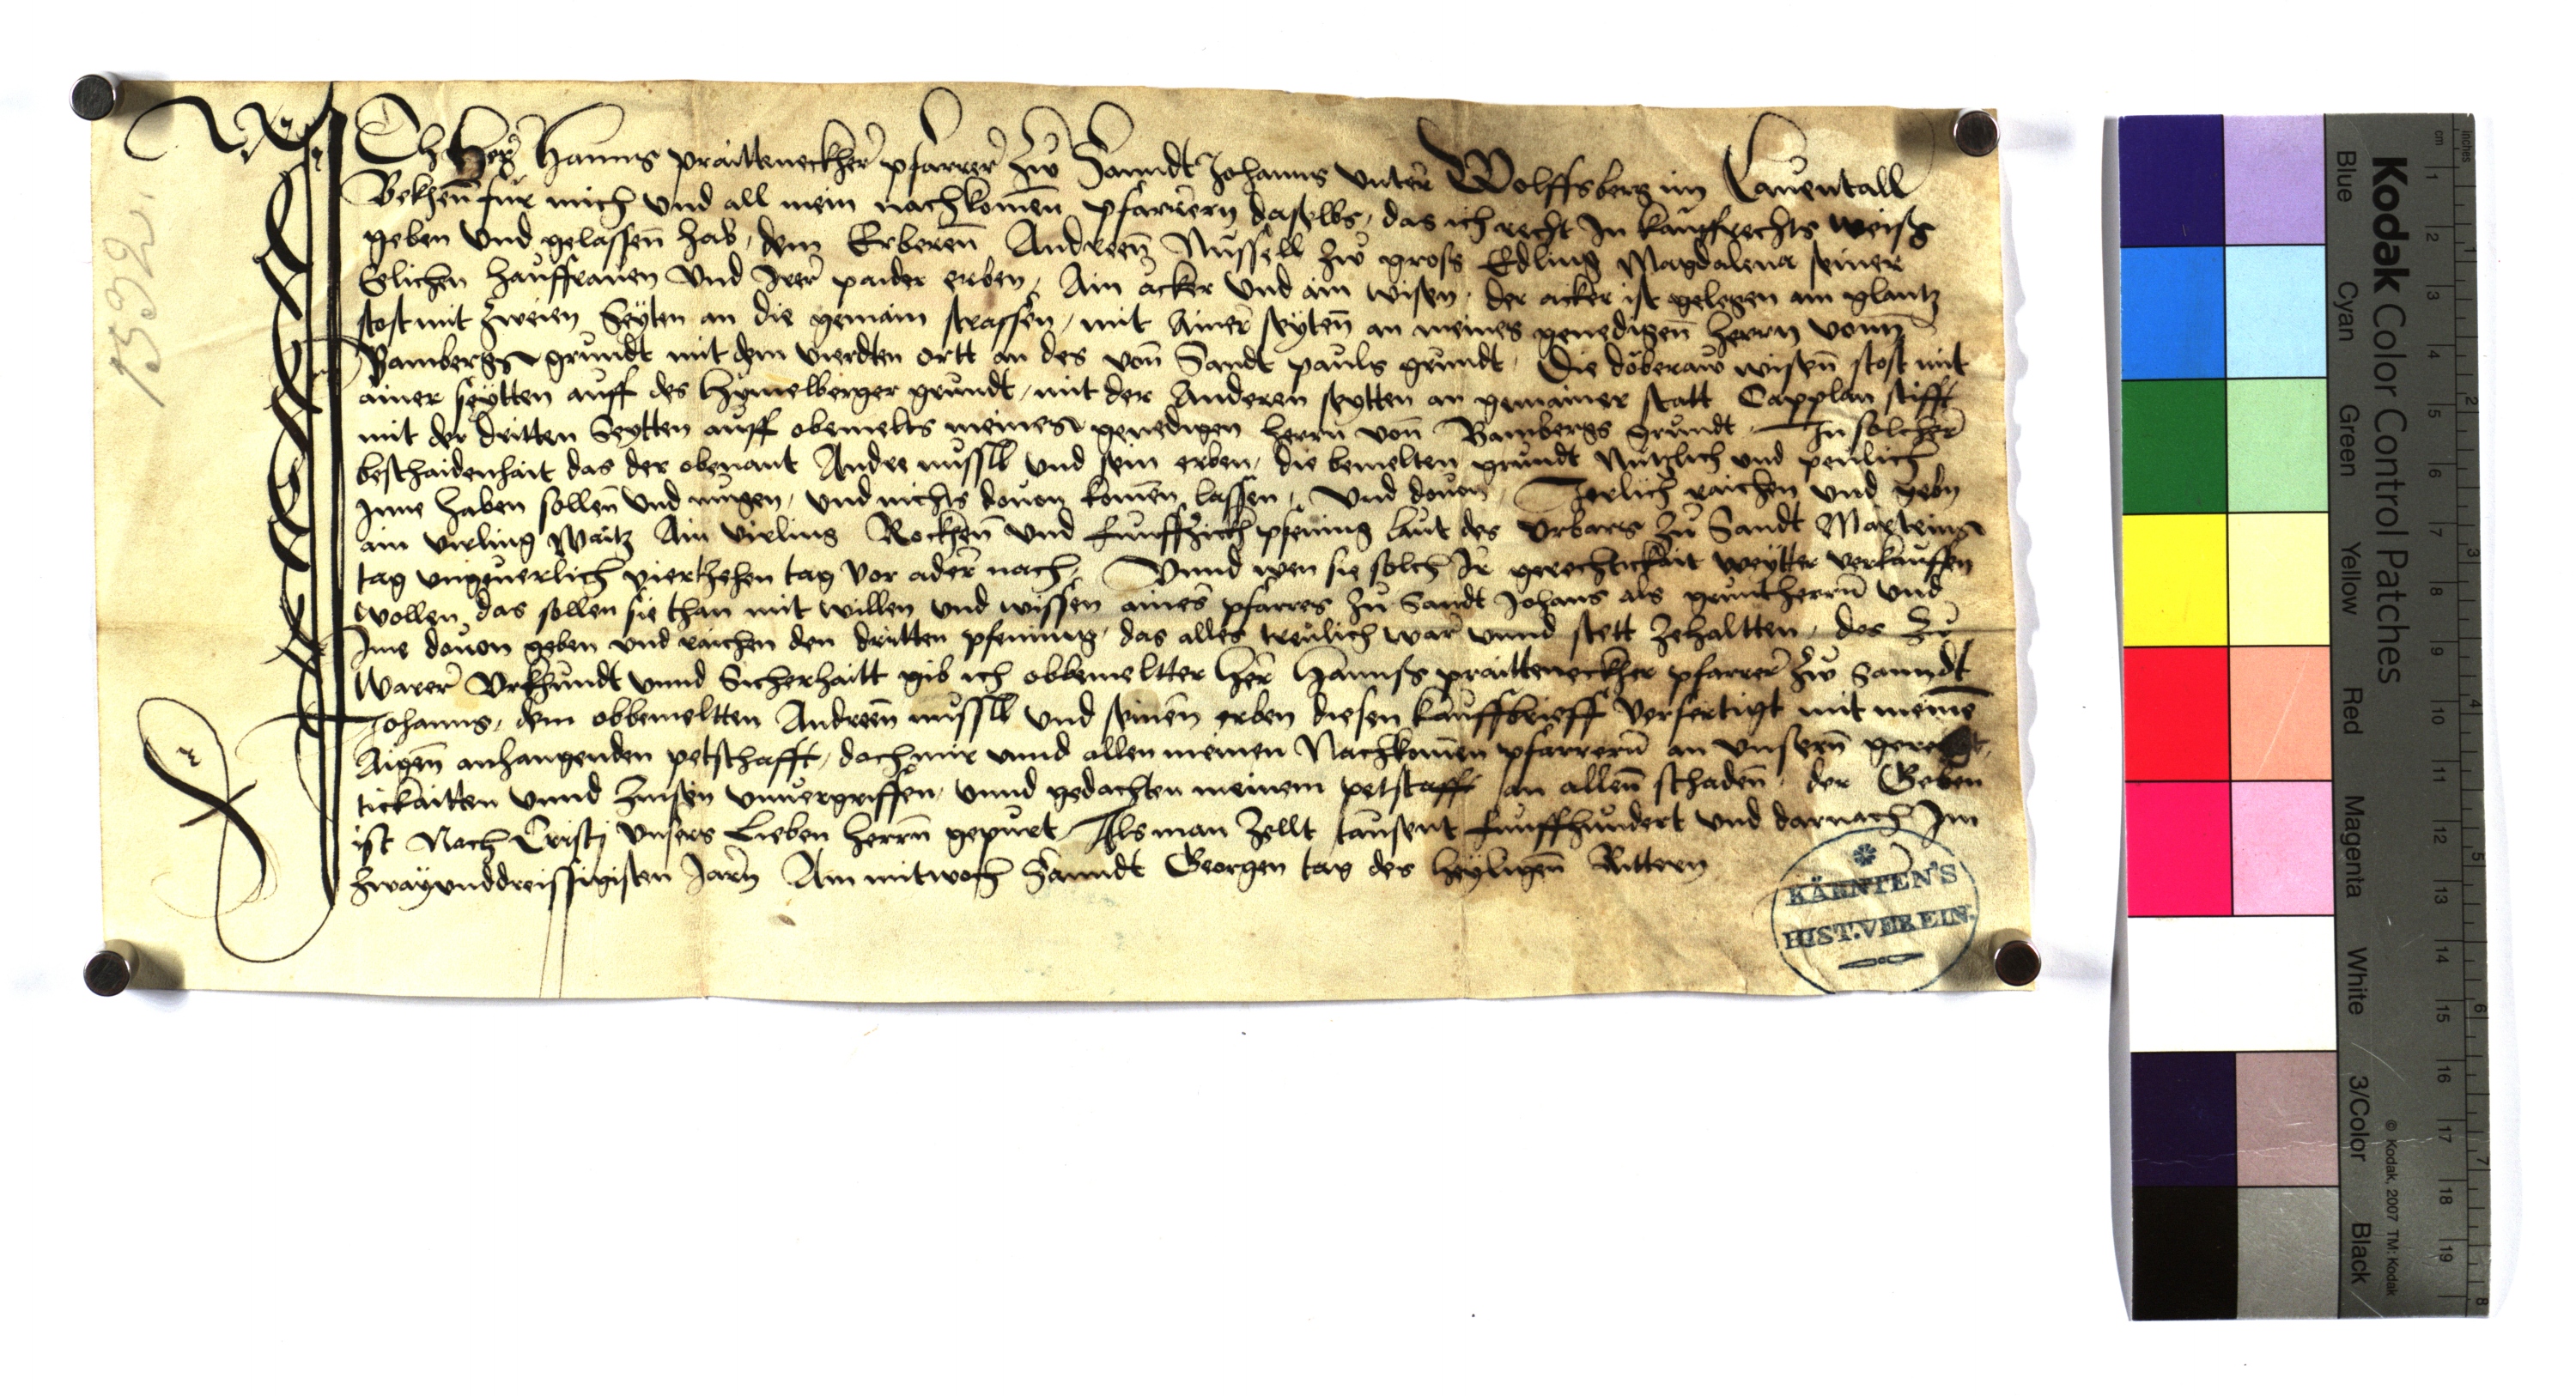 Ich Her Hanns praitteneckher pfarrer zw Sanndt Johanns unter Wolffsberg im Lauentall
Bekhenn fur mich und all mein nachkomen pfarrern daselbs, das ich recht In kauffrechts weiss
geben und gelassen hab, dem Erberen Andreen Nussell zw gross Edling Magdalena seiner
Elichen hauffrauen und Irer paider erben, Ain acker und ain wisen, der acker ist gelegen am glantz
stost mit zweien Seyten an die gemain strassen, mit Ainer seyten an meines genedigen herrn vonn
Bambergs grundt mit dem vierdten ortt an des von Sandt pauls grundt, Die doberaw wisen stost mit
ainer seytten auff des Hymelberger grundt, mit der Anderen seytten an gemainer statt Capplan stifft
mit der dritten Seytten auff obemelts meines genedigen herrn von Bambergs grundt, In solcher
beschaidenhait das der obenant Andre nussll und sein erben, die bemelten grundt Nutzlich und peulich
Inne haben sollen und mugen, und nichts douon komen lassen, Und douon, Jerlich raichen und gebn
ain virling Waitz Ain virling Rocken und funffzich pfening laut des Urbars zu Sandt Marteins
tag ungeuerlich vierzehen tag vor ader nach, Unnd wen sie solch Ir gerechtickait weytter verkauffen
wollen, das sollen sie than mit willen und wissen aines pfarres zu Sandt Johans als gruntherrn und
Ime douon geben und raichen den dritten pfening, das alles treulich war unnd stett zehaltten, des zu
Warer Urkhundt unnd Sicherhaitt gib ich obbemeltter Her Hannss praitteneckher pfarrer zw Sanndt
Johanns, dem obbemeltten Andreen nussll und seinen erben diesen kauffbrieff verfertigt mit meine
Aigen anhangenden petschafft, doch mir unnd allen meinen Nachkomen pfarrern an unsern gerech
tickaitten unnd zinsen unuergriffen, unnd gedachten meinem petstafft an allen schaden, der Geben
ist Nach Cristi unsers Lieben herrn gepurt Als man zellt tausent funffhundert und darnach Im
zwayunddreissigisten Jarn Am mitwoch Sanndt Georgen tag des heyligen Rittern
1532.
KÄRNTEN'S
HIST.VEREIN.
Kodak Color Control Patches
Blue Cyan Green Yellow Red Magenta White 3/Color Black
© Kodak, 2007 TM: Kodak
cm 1 2 3 4 5 6 7 8 9 10 11 12 13 14 15 16 17 18 19
inches 1 2 3 4 5 6 7 8